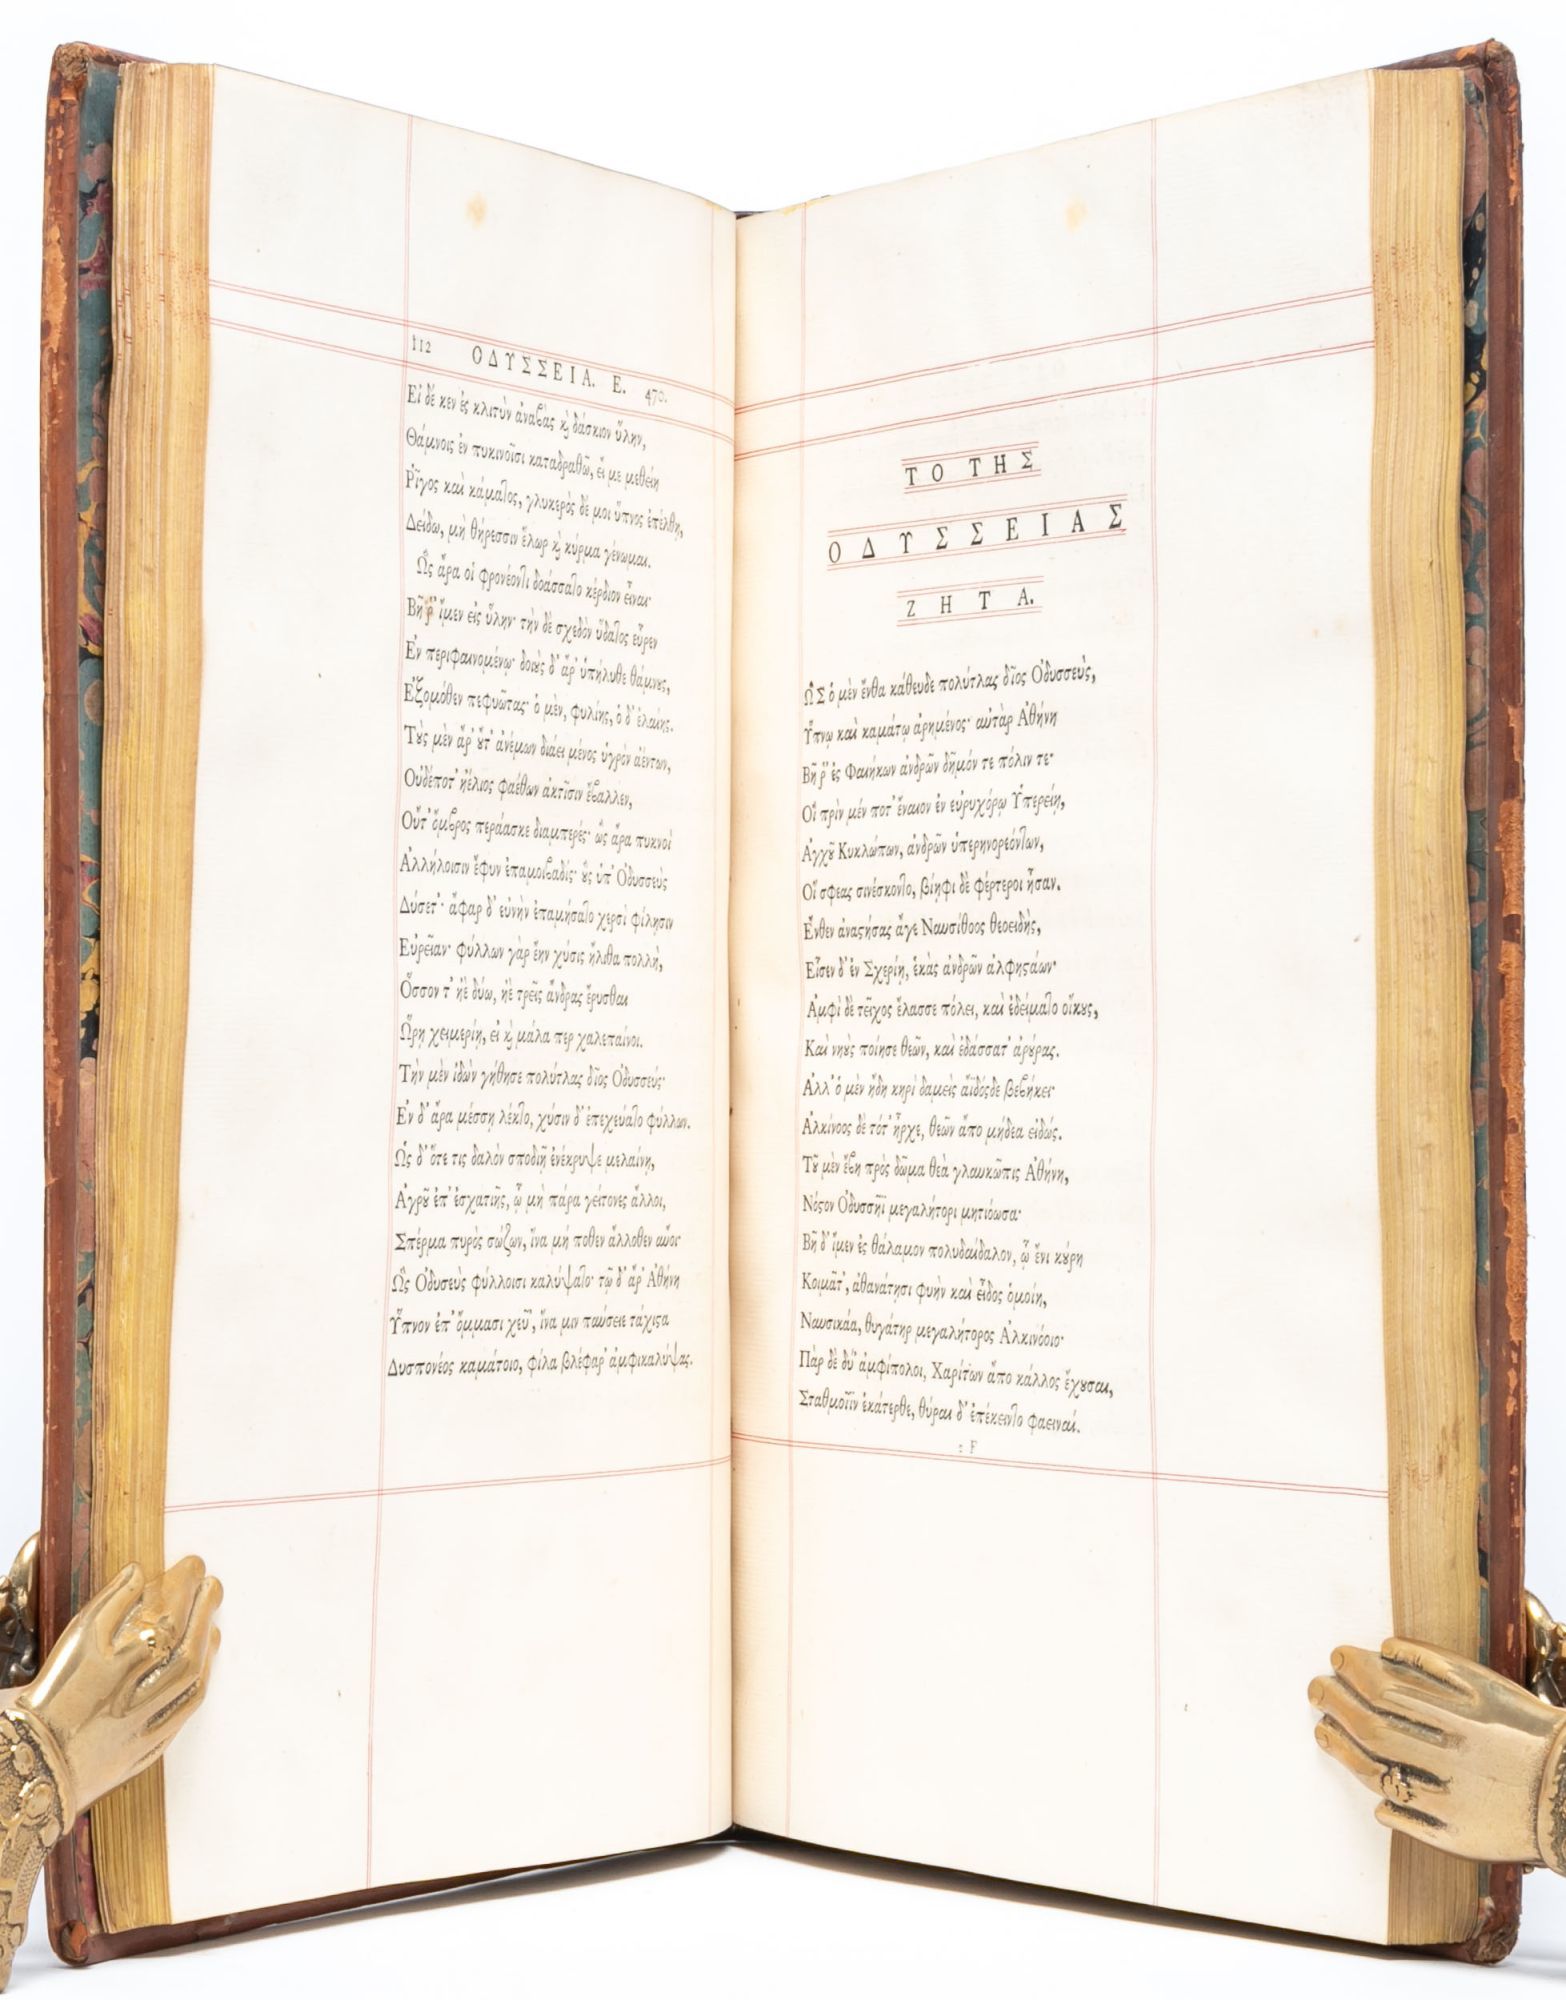 112 ΟΔΥΣΣΕΙΑ. Ε. 470.
Εἰ δέ κεν ἐς κλιτὺν ἀναβὰς ϗ δάσκιον ὕλην,
Θάμνοις ἐν πυκινοῖσι καταδραθῶ, εἴ με μεθείη
Ῥῖγος καὶ κάματος, γλυκερὸς δέ μοι ὕπνος ἐπέλθῃ,
Δείδω, μὴ θήρεσσιν ἕλωρ ϗ κύρμα γένωμαι.
Ὣς ἄρα οἱ φρονέοντι δοάσσατο κέρδιον εἶναι·
Βῆ ῥ' ἴμεν εἰς ὕλην· τὴν δὲ σχεδὸν ὕδατος εὗρεν
Ἐν περιφαινομένῳ· δοιȣ̀ς δ' ἄρ' ὑπήλυθε θάμνȣς,
Ἐξομόθεν πεφυῶτας· ὁ μὲν, φυλίης, ὁ δ' ἐλαίης.
Τȣ̀ς μὲν ἄρ' ȣ̓́τ' ἀνέμων διάει μένος ὑγρὸν ἀέντων,
Οὐδέποτ' ἠέλιος φαέθων ἀκτῖσιν ἔβαλλεν,
Οὔτ' ὄμβρος περάασκε διαμπερές· ὣς ἄρα πυκνοὶ
Ἀλλήλοισιν ἔφυν ἐπαμοιβαδίς· ȣ̔̀ς ὑπ' Ὀδυσσεὺς
Δύσετ'· ἄφαρ δ' εὐνὴν ἐπαμήσατο χερσὶ φίλησιν
Εὐρεῖαν· φύλλων γὰρ ἔην χύσις ἤλιθα πολλὴ,
Ὅσσον τ' ἠὲ δύω, ἠὲ τρεῖς ἄνδρας ἔρυσθαι
Ὥρῃ χειμερίῃ, εἰ ϗ μάλα περ χαλεπαίνοι.
Τὴν μὲν ἰδὼν γήθησε πολύτλας δῖος Ὀδυσσεύς·
Ἐν δ' ἄρα μέσσῃ λέκτο, χύσιν δ' ἐπεχεύατο φύλλων.
Ὡς δ' ὅτε τις δαλὸν σποδιῇ ἐνέκρυψε μελαίνῃ,
Ἀγρȣ͂ ἐπ' ἐσχατιῆς, ᾧ μὴ πάρα γείτονες ἄλλοι,
Σπέρμα πυρὸς σώζων, ἵνα μή ποθεν ἄλλοθεν αὔοι·
Ὣς Ὀδυσεὺς φύλλοισι καλύψατο· τῷ δ' ἄρ' Ἀθήνη
Ὕπνον ἐπ' ὄμμασι χεῦ', ἵνα μιν παύσειε τάχιϛα
Δυσπονέος καμάτοιο, φίλα βλέφαρ' ἀμφικαλύψας.
ΤΟ ΤΗΣ
ΟΔΥΣΣΕΙΑΣ
ΖΗΤΑ.
ὫΣ ὁ μὲν ἔνθα κάθευδε πολύτλας δῖος Ὀδυσσεὺς,
Ὕπνῳ καὶ καμάτῳ ἀρημένος· αὐτὰρ Ἀθήνη
Βῆ ῥ' ἐς Φαιήκων ἀνδρῶν δῆμόν τε πόλιν τε·
Οἳ πρὶν μέν ποτ' ἔναιον ἐν εὐρυχόρῳ Ὑπερείῃ,
Ἀγχȣ͂ Κυκλώπων, ἀνδρῶν ὑπερηνορεόντων,
Οἵ σφεας σινέσκοντο, βίηφι δὲ φέρτεροι ἦσαν.
Ἔνθεν ἀναϛήσας ἄγε Ναυσίθοος θεοειδὴς,
Εἷσεν δ' ἐν Σχερίῃ, ἑκὰς ἀνδρῶν ἀλφηϛάων·
Ἀμφὶ δὲ τεῖχος ἔλασσε πόλει, καὶ ἐδείματο οἴκȣς,
Καὶ νηȣ̀ς ποίησε θεῶν, καὶ ἐδάσσατ' ἀρȣ́ρας.
Ἀλλ' ὁ μὲν ἤδη κηρὶ δαμεὶς ἄϊδόσδε βεβήκει·
Ἀλκίνοος δὲ τότ' ἦρχε, θεῶν ἄπο μήδεα εἰδώς.
Τȣ͂ μὲν ἔβη πρὸς δῶμα θεὰ γλαυκῶπις Ἀθήνη,
Νόϛον Ὀδυσσῆϊ μεγαλήτορι μητιόωσα·
Βῆ δ' ἴμεν ἐς θάλαμον πολυδαίδαλον, ᾧ ἔνι κȣ́ρη
Κοιμᾶτ', ἀθανάτησι φυὴν καὶ εἶδος ὁμοίη,
Ναυσικάα, θυγάτηρ μεγαλήτορος Ἀλκινόοιο·
Πὰρ δὲ δύ' ἀμφίπολοι, Χαρίτων ἄπο κάλλος ἔχȣσαι,
Σταθμοῖϊν ἑκάτερθε, θύραι δ' ἐπέκειντο φαειναί.
2 F